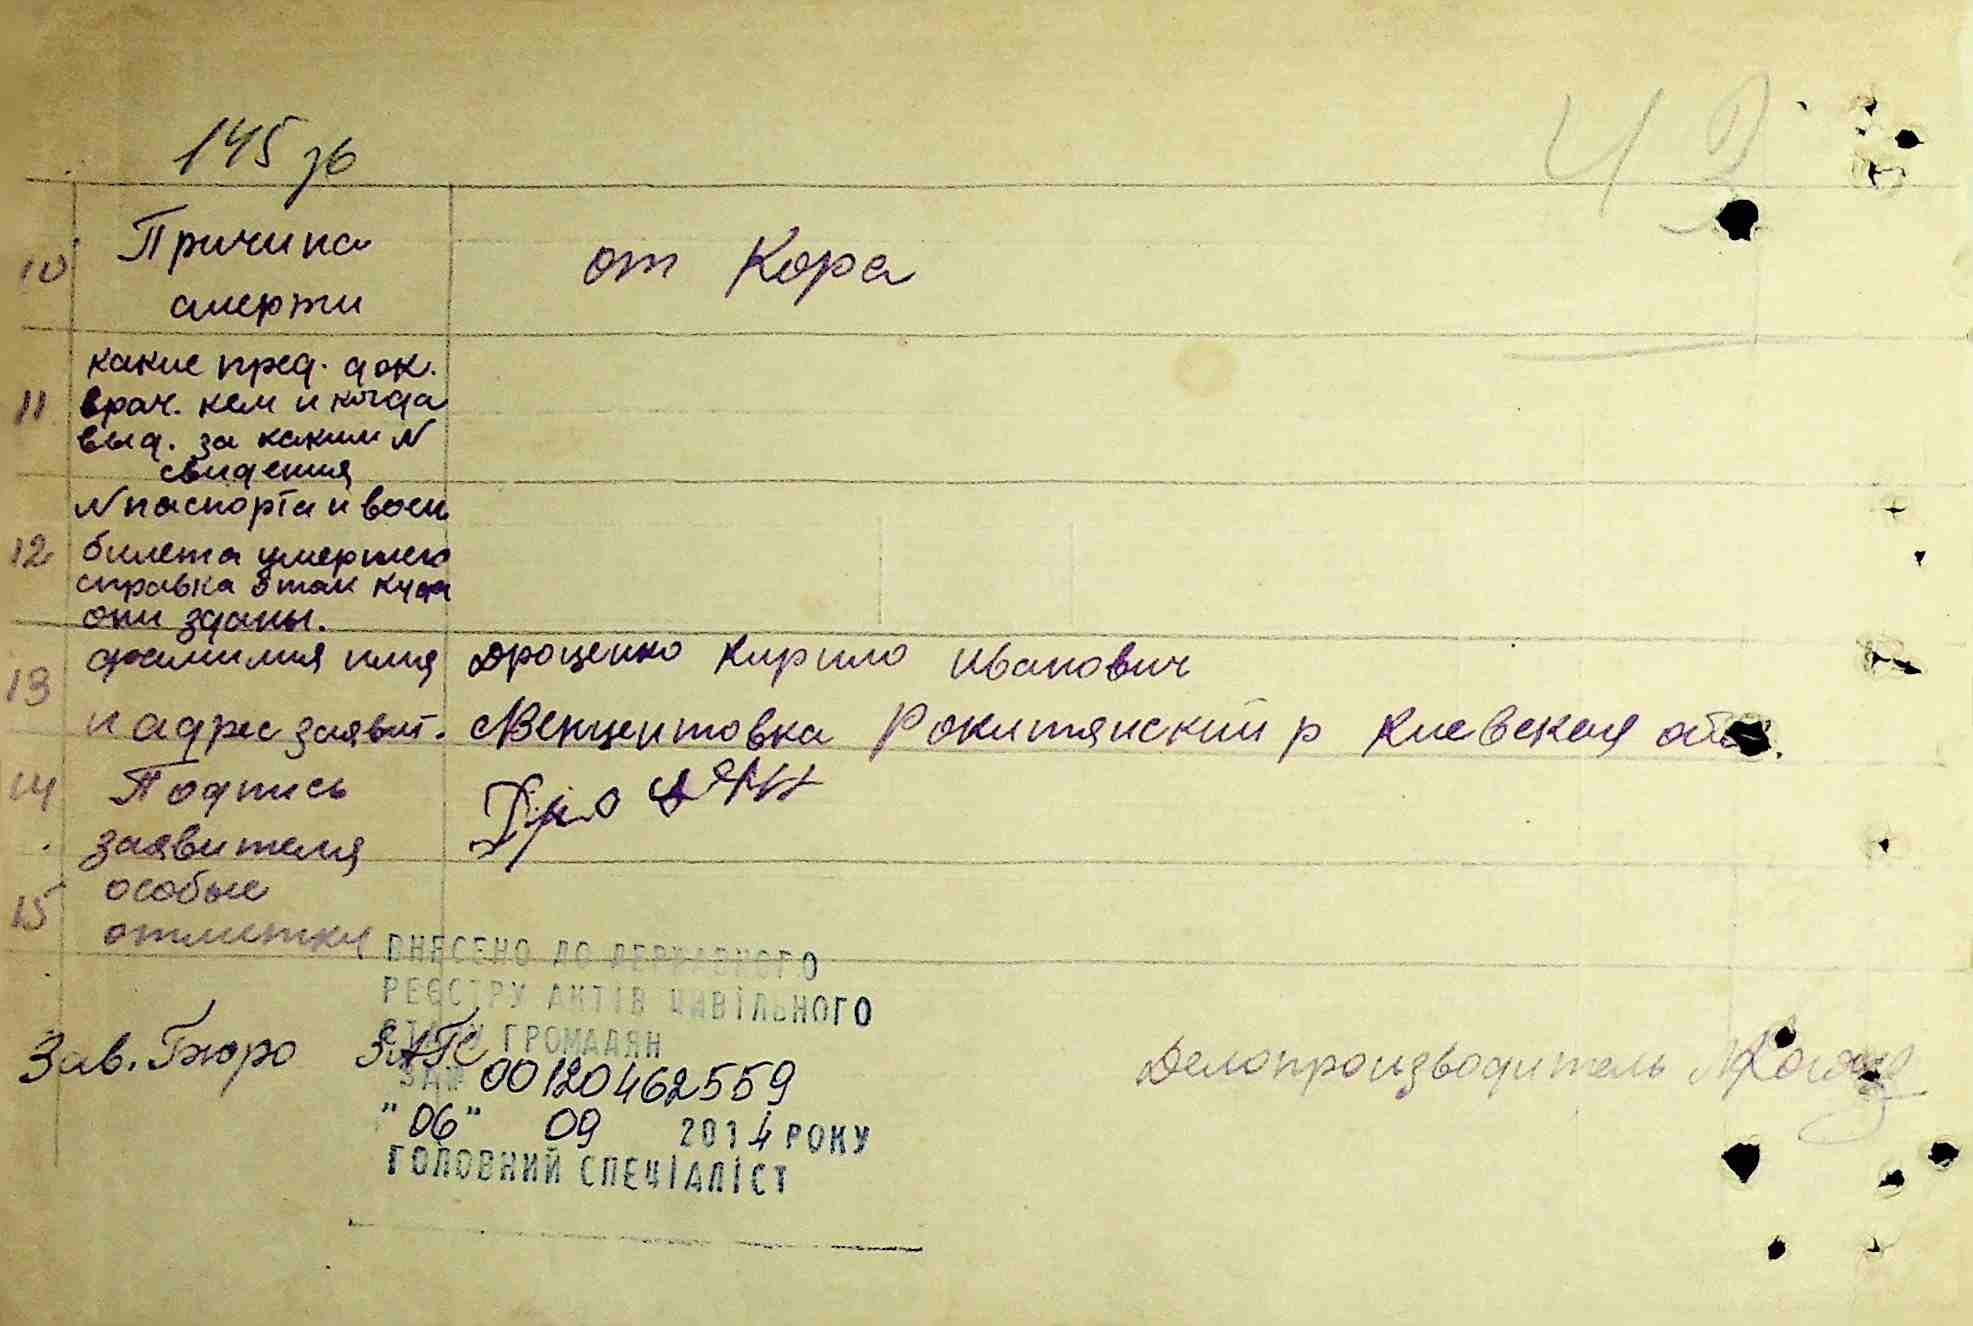 145 зв
10 Причина от Кора
смерти
какие пред. док.
11 врач. кем и когда
выд. за каким N
свидения
N паспорта и воен
12 билета умершего
справка э так куда
они зданы.
13 фамилия имя Дроценко Кирило Иванович
и адрес заявит. Венцентовка Рокитянский р Киевская
14 Подпись
заявителя
15 особые
отметки
ВНЕСЕНО ДО ДЕРЖАВНОГО
РЕЄСТРУ АКТІВ ЦИВІЛЬНОГО
СТАНУ ГРОМАДЯН
Зав. Бюро ЗАГС Делопроизводитель
ЗА № 00120462559
"06" 09 2014 РОКУ
ГОЛОВНИЙ СПЕЦІАЛІСТ